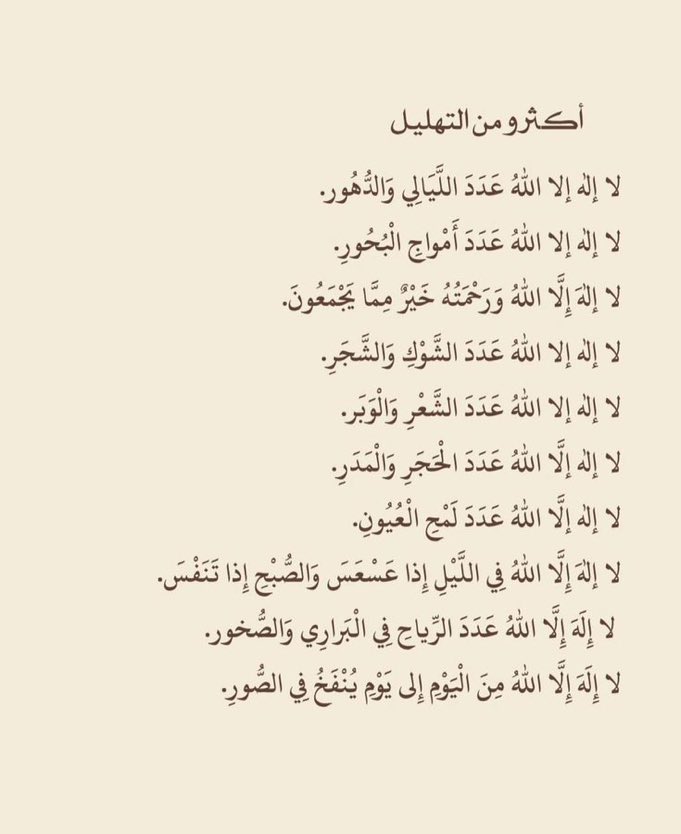 أكثرو من التهليل
لا إلٰه إلا اللهُ عَدَدَ اللَّيَالِي وَالدُّهُور.
لا إلٰه إلا اللهُ عَدَدَ أَمْواجِ الْبُحُورِ.
لا إلٰهَ إِلَّا اللهُ وَرَحْمَتُهُ خَيْرٌ مِمَّا يَجْمَعُونَ.
لا إلٰه إلا اللهُ عَدَدَ الشَّوْكِ وَالشَّجَرِ.
لا إلٰه إلا اللهُ عَدَدَ الشَّعْرِ وَالْوَبَر.
لا إلٰه إلَّا اللهُ عَدَدَ الْحَجَرِ وَالْمَدَرِ.
لا إلٰه إلَّا اللهُ عَدَدَ لَمْحِ الْعُيُونِ.
لا إلٰهَ إِلَّا اللهُ فِي اللَّيْلِ إِذا عَسْعَسَ وَالصُّبْحِ إِذا تَنَفْسَ.
لا إِلَهَ إِلَّا اللهُ عَدَدَ الرِّياحِ فِي الْبَرارِي وَالصُّخور.
لا إِلَهَ إِلَّا اللهُ مِنَ الْيَوْمِ إِلى يَوْمِ يُنْفَخُ فِي الصُّورِ.